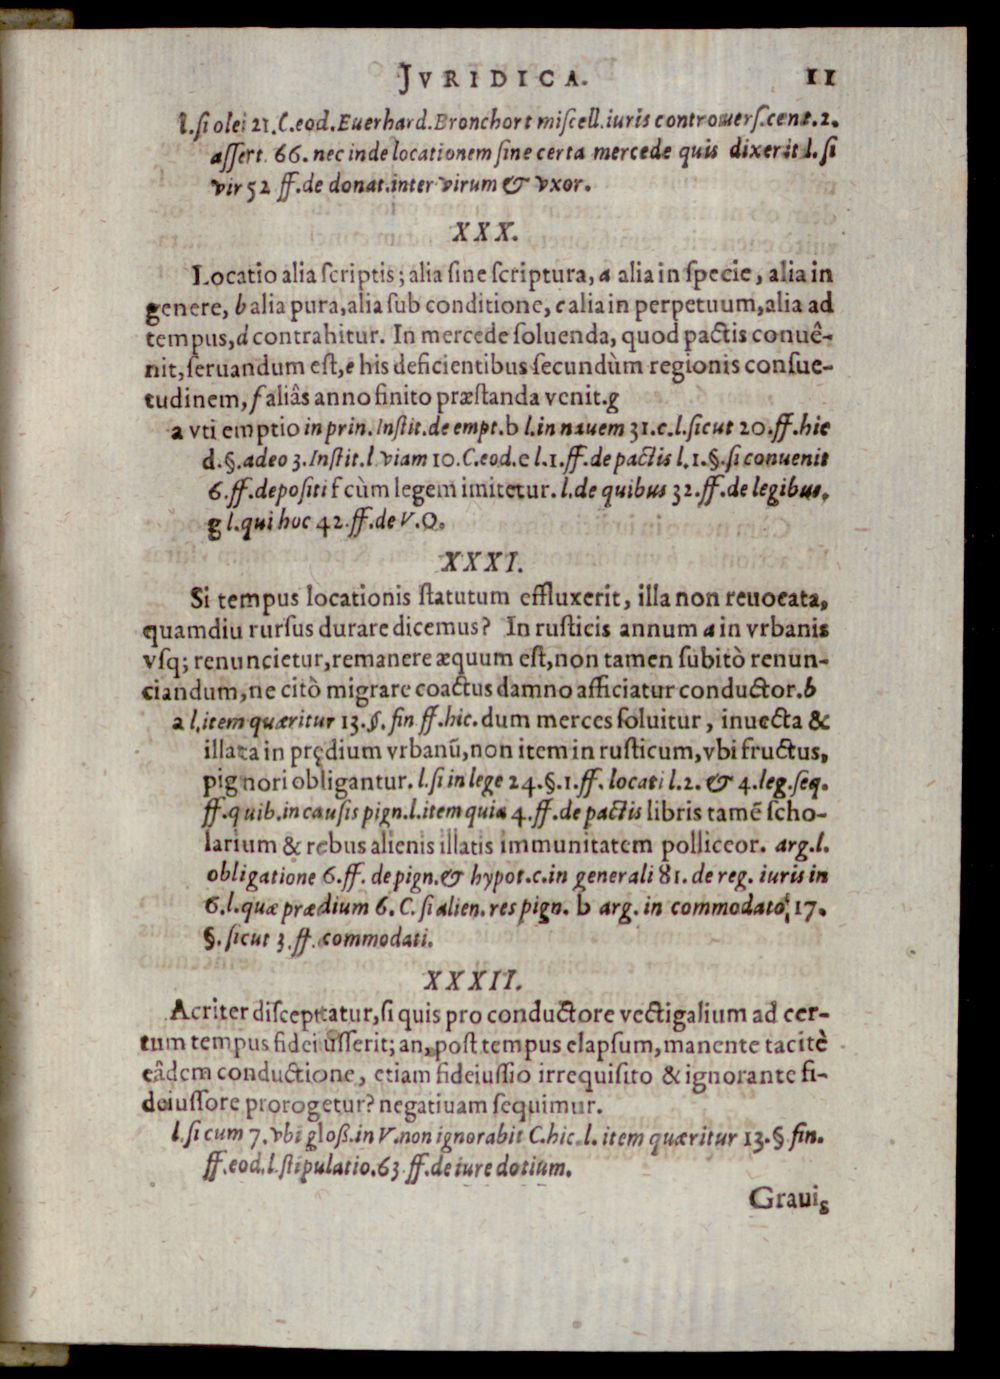 JVRIDICA. 11
l. ſi olei 21. C. eod. Euerhard. Bronchort miſcell. iuris controuerſ. cent. 2.
aſſert. 66. nec inde locationem ſine certa mercede quis dixerit l. ſi
vir 52 ff. de donat. inter virum & vxor.
XXX.
Locatio alia ſcriptis; alia ſine ſcriptura, a alia in ſpecie, alia in
genere, b alia pura, alia ſub conditione, c alia in perpetuum, alia ad
tempus, d contrahitur. In mercede ſoluenda, quod pactis conuê-
nit, ſeruandum eſt, e his deficientibus ſecundùm regionis conſue-
tudinem, f aliâs anno finito præſtanda venit. g
a vti emptio in prin. Inſtit. de empt. b l. in nauem 31. c. l. ſicut 20. ff. hic
d. §. adeo 3. Inſtit. l. viam 10. C. eod. e l. 1. ff. de pactis l. 1. §. ſi conuenit
6. ff. depoſiti f cùm legem imitetur. l. de quibus 32. ff. de legibus,
g l. qui hoc 42. ff. de V. O.
XXXI.
Si tempus locationis ſtatutum effluxerit, illa non reuocata,
quamdiu rurſus durare dicemus? In ruſticis annum a in vrbanis
vſq; renuncietur, remanere æquum eſt, non tamen ſubitò renun-
ciandum, ne citò migrare coactus damno afficiatur conductor. b
a l. item quæritur 13. §. fin ff. hic. dum merces ſoluitur, inuecta &
illata in prędium vrbanũ, non item in ruſticum, vbi fructus,
pignori obligantur. l. ſi in lege 24. §. 1. ff. locati l. 2. & 4. leg. ſeq.
ff. quib. in cauſis pign. l. item quia 4. ff. de pactis libris tamẽ ſcho-
larium & rebus alienis illatis immunitatem polliceor. arg. l.
obligatione 6. ff. de pign. & hypot. c. in generali 81. de reg. iuris in
6. l. quæ prædium 6. C. ſi alien. res pign. b arg. in commodato 17.
§. ſicut 3. ff. commodati.
XXXII.
Acriter diſceptatur, ſi quis pro conductore vectigalium ad cer-
tum tempus fidei iuſſerit; an, poſt tempus elapſum, manente tacitè
eâdem conductione, etiam fideiuſſio irrequiſito & ignorante fi-
deiuſſore prorogetur? negatiuam ſequimur.
l. ſi cum 7. vbi gloß. in V. non ignorabit C. hic. l. item quæritur 13. § fin.
ff. eod. l. ſtipulatio. 63. ff. de iure dotium.
Grauis